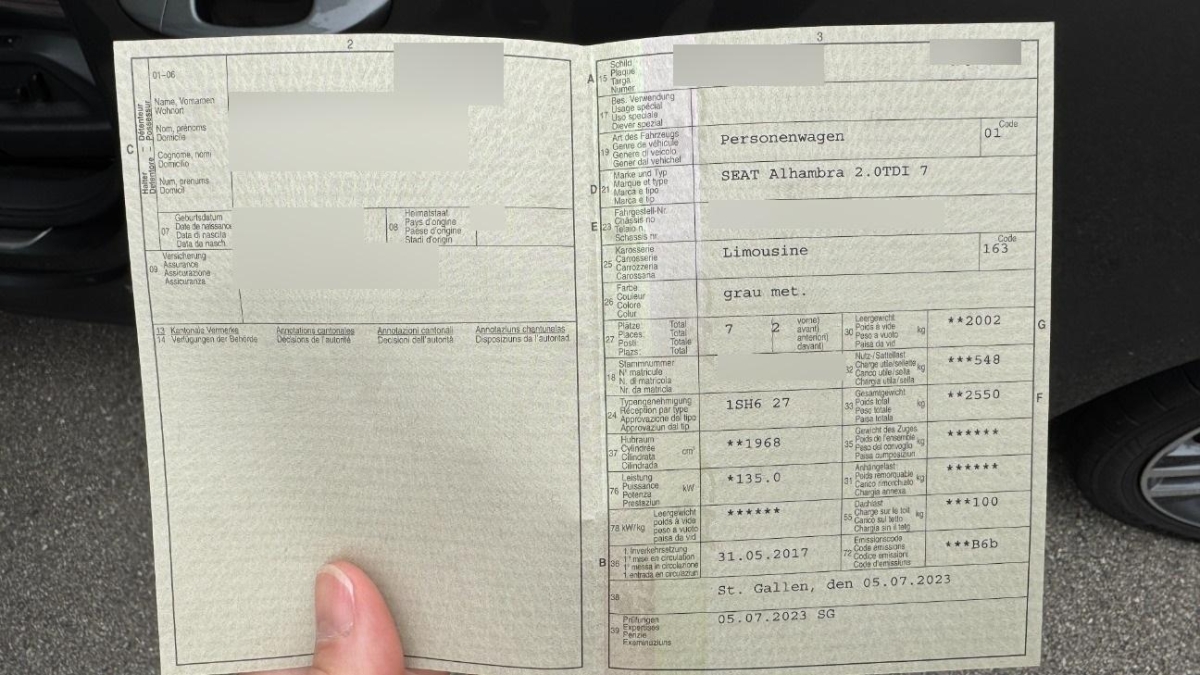 2
01-06
C
Halter – Détenteur
Detentore – Possessur
Name, Vornamen
Wohnort
Nom, prénoms
Domicile
Cognome, nomi
Domicilio
Num, prenums
Domicil
07
Geburtsdatum
Date de naissance
Data di nascita
Data da nasch.
08
Heimatstaat
Pays d'origine
Paese d'origine
Stadi d'origin
09
Versicherung
Assurance
Assicurazione
Assicuranza
13 Kantonale Vermerke Annotations cantonales Annotazioni cantonali Annotaziuns chantunalas
14 Verfügungen der Behörde Décisions de l'autorité Decisioni dell'autorità Disposiziuns da l'autoritad
3
A
15
Schild
Plaque
Targa
Numer
17
Bes. Verwendung
Usage spécial
Uso speciale
Diever spezial
19
Art des Fahrzeugs
Genre de véhicule
Genere di veicolo
Gener dal vehichel
Personenwagen
Code
01
D
21
Marke und Typ
Marque et type
Marca e tipo
Marca e tip
SEAT Alhambra 2.0TDI 7
E
23
Fahrgestell-Nr.
Châssis no
Telaio n.
Schassis nr.
25
Karosserie
Carrosserie
Carrozzeria
Carossaria
Limousine
Code
163
26
Farbe
Couleur
Colore
Colur
grau met.
27
Plätze: Total
Places: Total
Posti: Totale
Plazs: Total
7
2
vorne)
avant)
anteriori)
davant)
30
Leergewicht
Poids à vide
Peso a vuoto
Paisa da vid
kg
**2002
G
18
Stammnummer
N° matricule
N. di matricola
Nr. da matricla
32
Nutz-/Sattellast
Charge utile/sellette
Carico utile/sella
Chargia utila/sella
kg
***548
24
Typengenehmigung
Réception par type
Approvazione del tipo
Approvaziun dal tip
1SH6 27
33
Gesamtgewicht
Poids total
Peso totale
Paisa totala
kg
**2550
F
37
Hubraum
Cylindrée
Cilindrata
Cilindrada
cm³
**1968
35
Gewicht des Zuges
Poids de l'ensemble
Peso del convoglio
Paisa cumposiziun
kg
******
76
Leistung
Puissance
Potenza
Prestaziun
kW
*135.0
31
Anhängelast
Poids remorquable
Carico rimorchiato
Chargia annexa
kg
******
78 kW/kg
Leergewicht
poids à vide
peso a vuoto
paisa da vid
******
55
Dachlast
Charge sur le toit
Carico sul tetto
Chargia sin il tetg
kg
***100
B
36
1. Inverkehrsetzung
1re mise en circulation
1a messa in circolazione
1. entrada en circulaziun
31.05.2017
72
Emissionscode
Code émissions
Codice emissioni
Code d'emissiuns
***B6b
38
St. Gallen, den 05.07.2023
39
Prüfungen
Expertises
Perizie
Examinaziuns
05.07.2023 SG